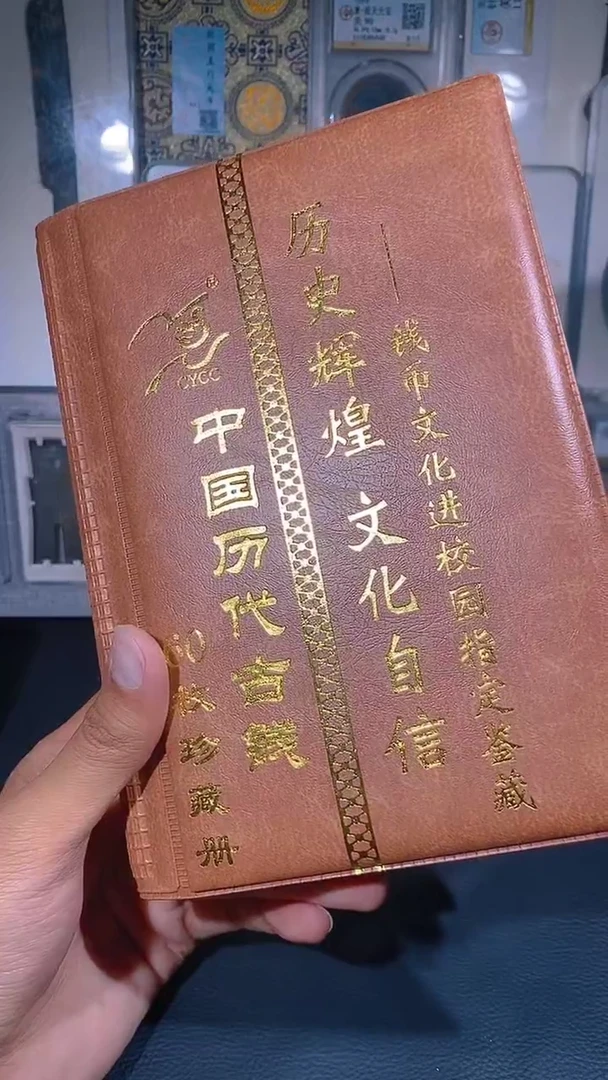 历史辉煌 文化自信
——钱币文化进校园指定鉴藏
CYGC
中国历代古钱
60枚珍藏册